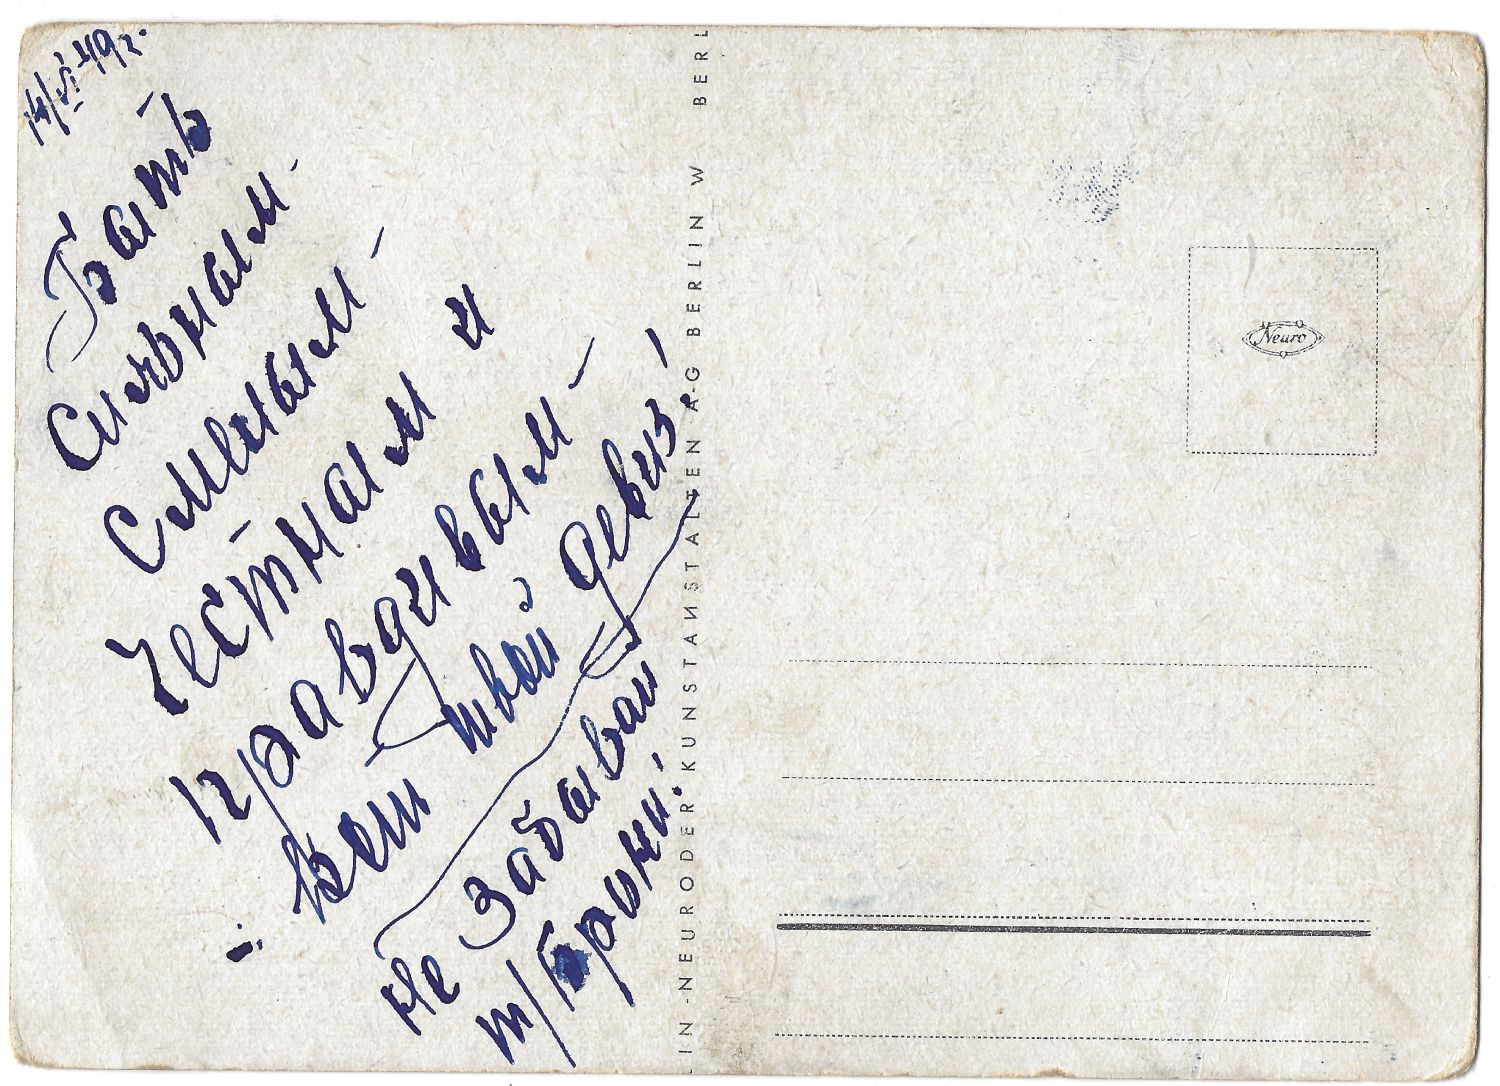 14/VI-49г.
Быть
Сильным-
Смелым-
честным и
правдивым-
вот твой девиз!
Не забывай
IN-NEURODER KUNSTANSTALTEN A-G BERLIN W BERL
Neuro